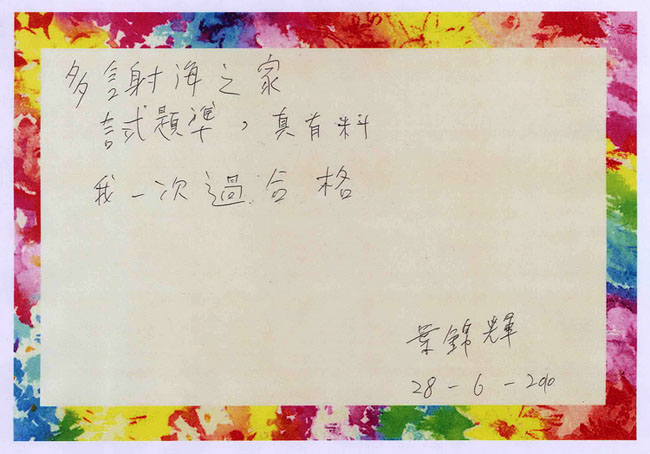 多謝海之家
試題準，真有料
我一次過合格
葉錦輝
28-6-2010